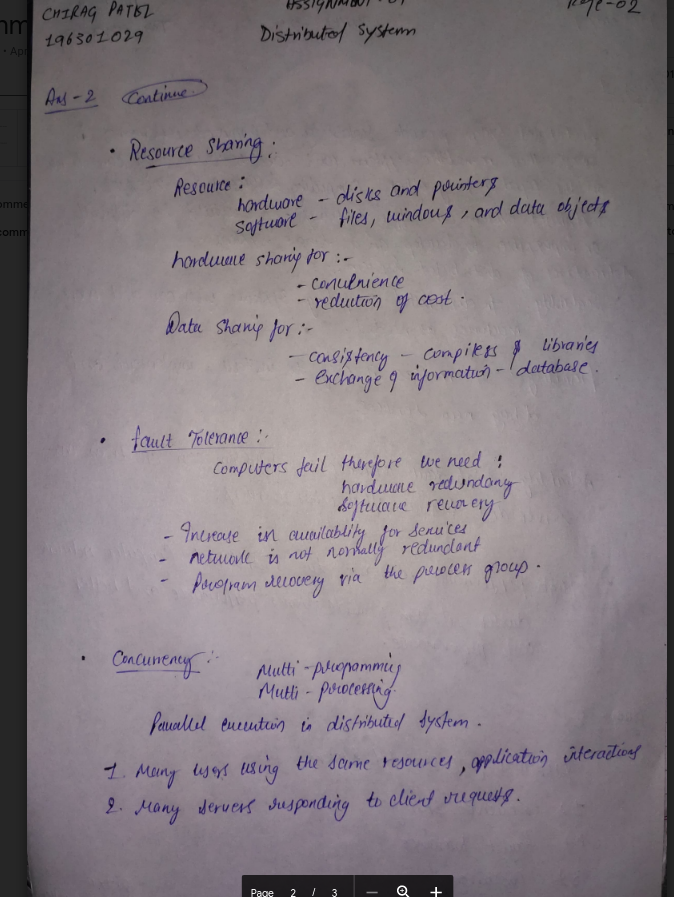 CHIRAG PATEL
ASSIGNMENT-01
Page-02
196301029
Distributed System
Ans-2 Continue.
• Resource Sharing:
Resource:
hardware - disks and pointers
Software - files, windows, and data objects
hardware sharing for :-
- convenience
- reduction of cost.
Data Sharing for :-
- consistency - compilers & libraries
- Exchange of information - database.
• fault Tolerance :-
Computers fail therefore we need :
hardware redundany
Software recovery
- Increase in availablity for Services
- network is not normally redundant
- Program recovery via the process group.
• Concurrency :-
Multi-programming
Multi-processing.
Parallel execution in distributed system.
1. Many users using the same resources, application interactions
2. Many servers responding to client requests.
Page 2 / 3